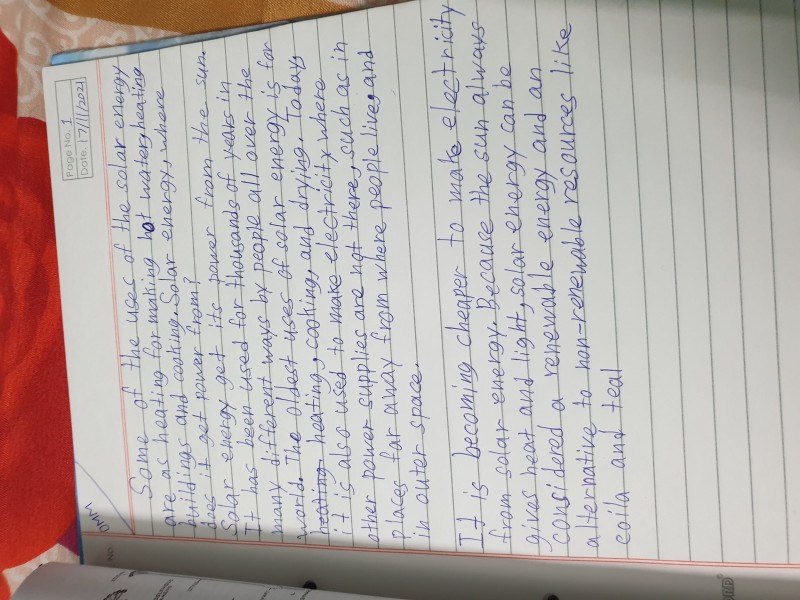 OMM
Page No. 1
Date. 17/11/2021
Some of the uses of the solar energy
are as heating for making hot water, heating
buildings and cooking. Solar energy, where
does it get power from?
Solar energy get its power from the sun.
It has been used for thousands of years in
many different ways by people all over the
world. The oldest uses of solar energy is for
heating heating, cooking, and drying. Today,
it is also used to make electricity where
other power supplies are not there, such as in
places far away from where people live, and
in outer space.
It is becoming cheaper to make electricity
from solar energy. Because the sun always
gives heat and light, solar energy can be
considered a renewable energy and an
alternative to non-renewable resources like
coila and teal
No.